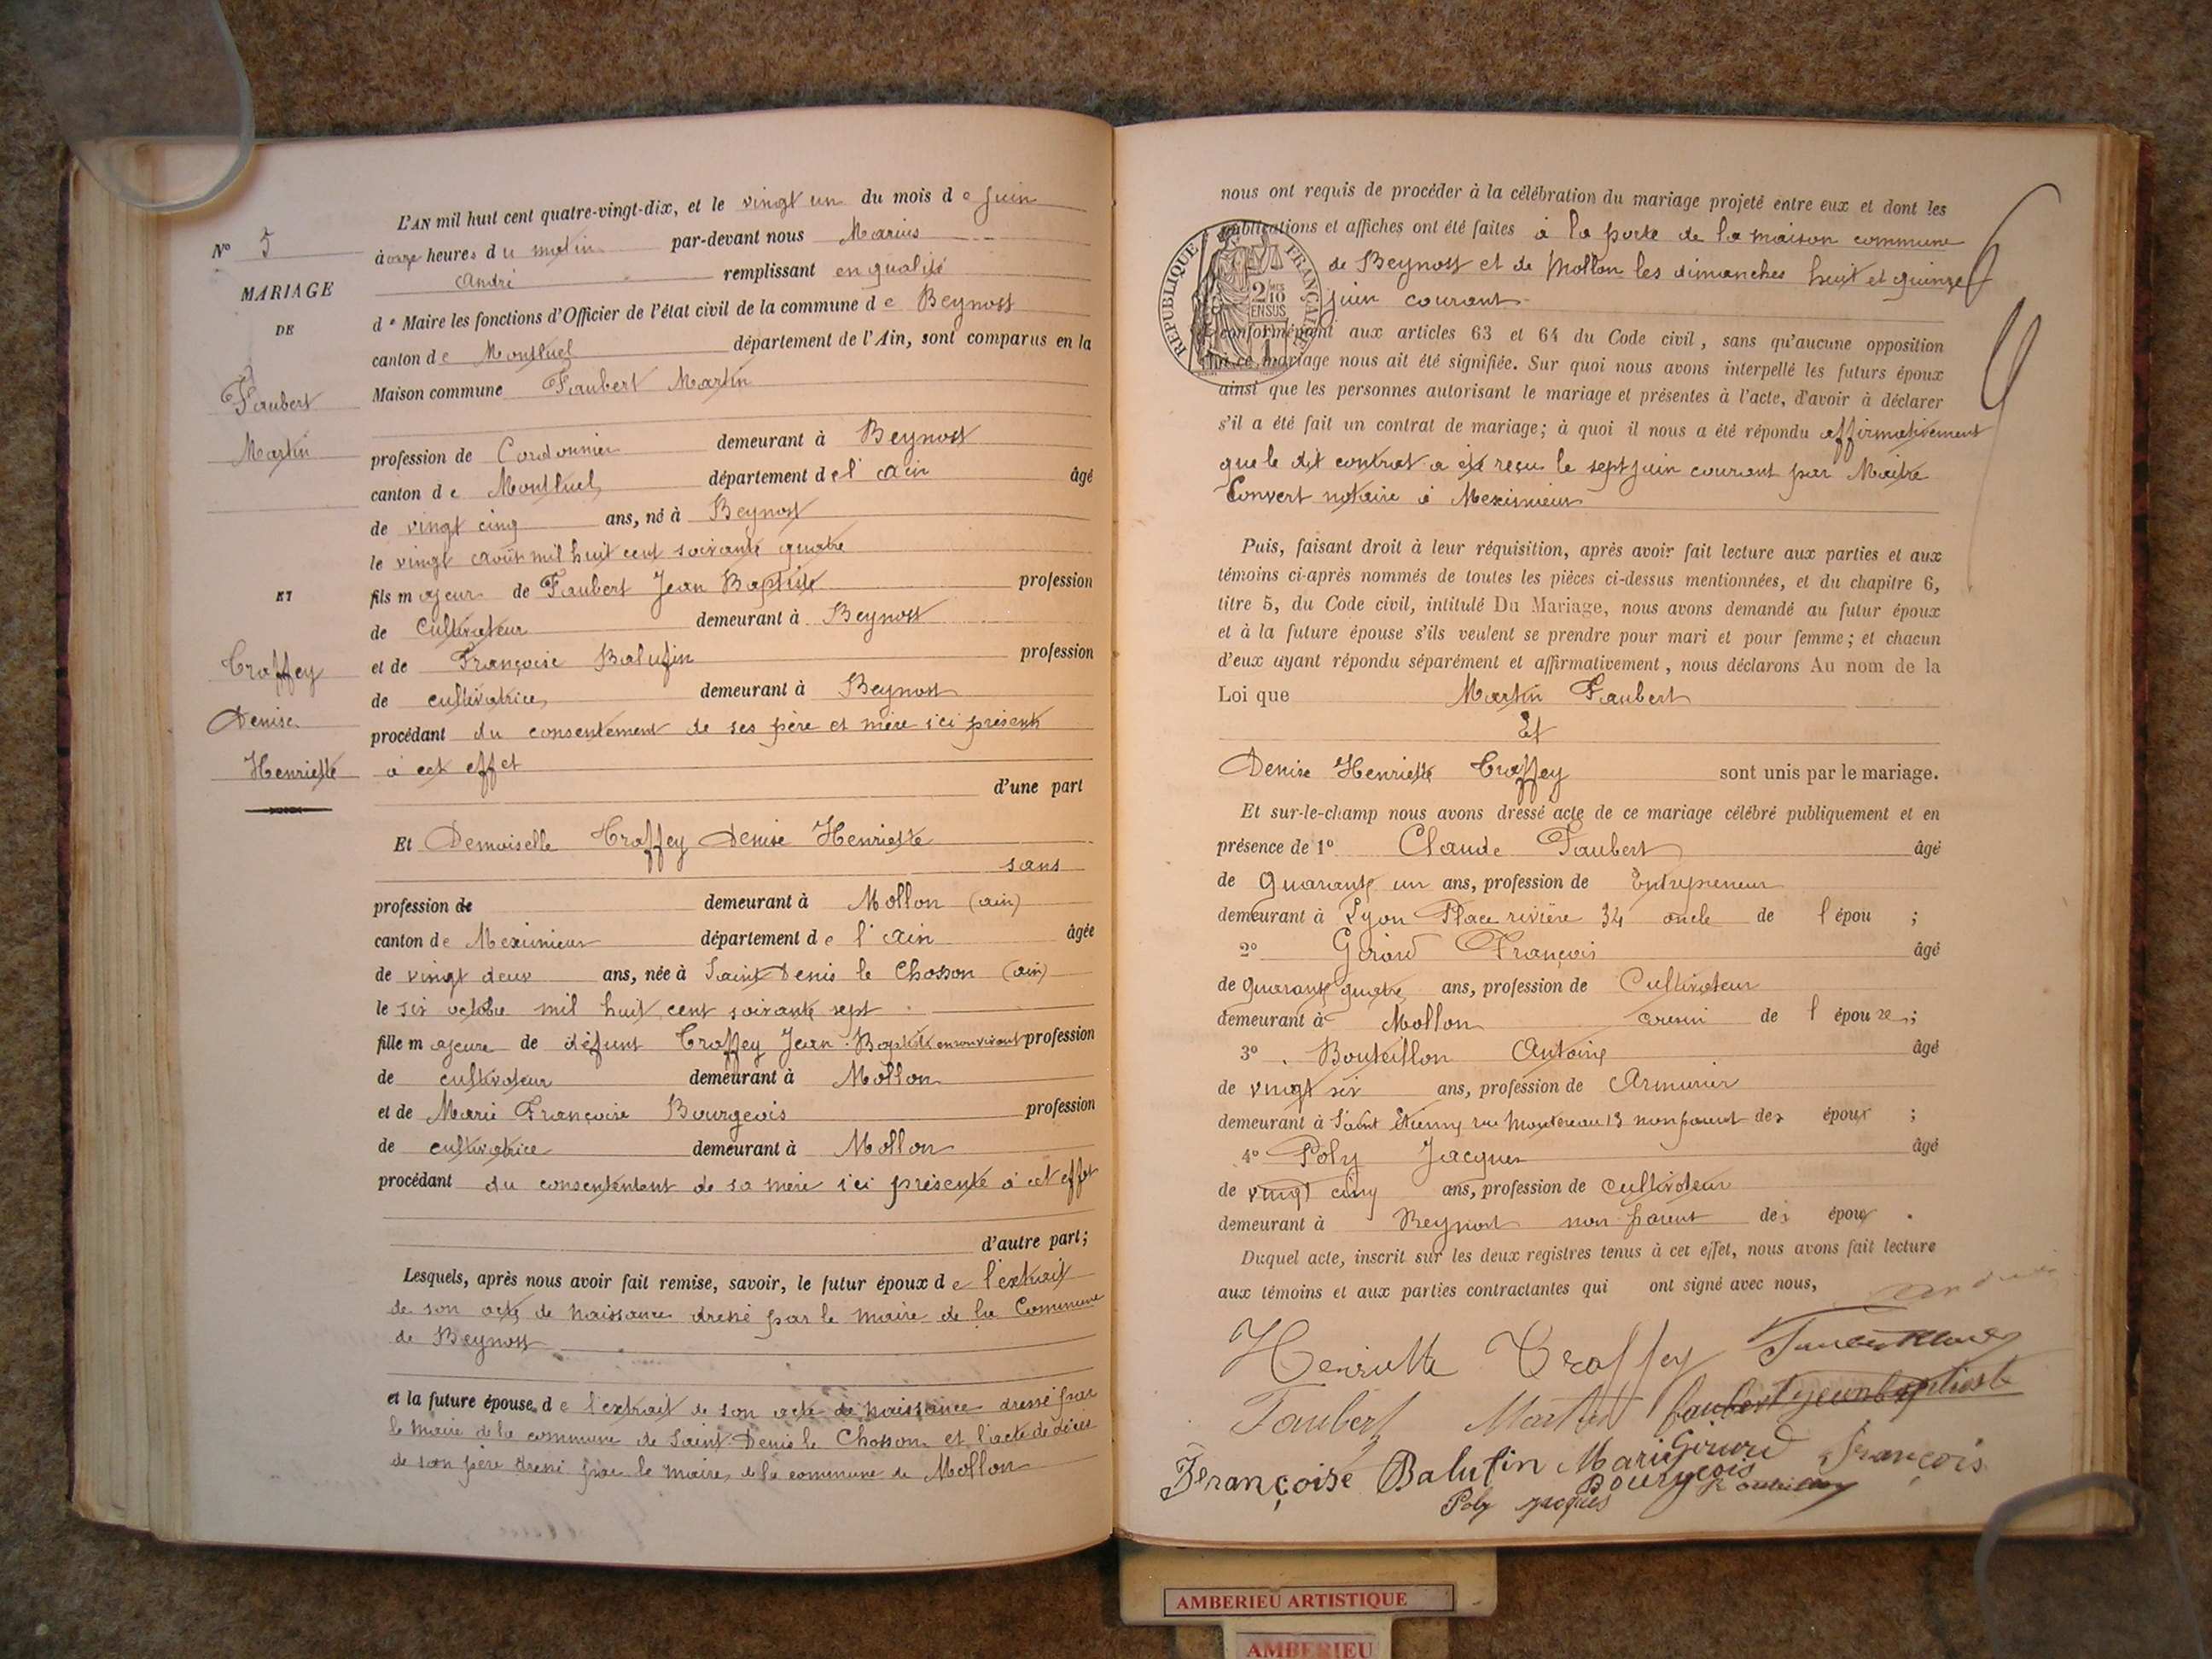 L'AN mil huit cent quatre-vingt-dix, et le vingt un du mois de Juin
N° 5 à onze heures du matin par-devant nous Marius
André remplissant en qualité
MARIAGE
de Maire les fonctions d'Officier de l'état civil de la commune de Beynost
DE
canton de Montluel département de l'Ain, sont comparus en la
Maison commune Faubert Martin
Faubert
Martin
profession de Cordonnier demeurant à Beynost
canton de Montluel département de l'ain âgé
de vingt cinq ans, né à Beynost
le vingt août mil huit cent soixante quatre
ET
fils majeur de Faubert Jean Baptiste profession
de Cultivateur demeurant à Beynost
et de Françoise Balufin profession
Traffey
de cultivatrice demeurant à Beynost
Denise
procédant du consentement de ses père et mère ici présents
Henriette
à cet effet
d'une part
Et Demoiselle Traffey Denise Henriette
sans
profession de demeurant à Mollon (ain)
canton de Meximieux département de l'ain âgée
de vingt deux ans, née à Saint Denis le Chosson (ain)
le six octobre mil huit cent soixante sept
fille majeure de défunt Traffey Jean-Baptiste en son vivant profession
de cultivateur demeurant à Mollon
et de Marie Françoise Bourgeois profession
de cultivatrice demeurant à Mollon
procédant du consentement de sa mère ici présente à cet effet
d'autre part;
Lesquels, après nous avoir fait remise, savoir, le futur époux de l'extrait
de son acte de naissance dressé par le maire de la Commune
de Beynost
et la future épouse de l'extrait de son acte de naissance dressé par
le maire de la commune de Saint-Denis le Chosson et l'acte de décès
de son père dressé par le maire de la commune de Mollon
nous ont requis de procéder à la célébration du mariage projeté entre eux et dont les
publications et affiches ont été faites à la porte de la maison commune
de Beynost et de Mollon les dimanches huit et quinze
juin courant
conformément aux articles 63 et 64 du Code civil, sans qu'aucune opposition
à ce mariage nous ait été signifiée. Sur quoi nous avons interpellé les futurs époux
ainsi que les personnes autorisant le mariage et présentes à l'acte, d'avoir à déclarer
s'il a été fait un contrat de mariage; à quoi il nous a été répondu affirmativement
que le dit contrat a été reçu le sept juin courant par Maître
Convert notaire à Meximieux
RÉPUBLIQUE FRANÇAISE
2/10 EN SUS
Puis, faisant droit à leur réquisition, après avoir fait lecture aux parties et aux
témoins ci-après nommés de toutes les pièces ci-dessus mentionnées, et du chapitre 6,
titre 5, du Code civil, intitulé Du Mariage, nous avons demandé au futur époux
et à la future épouse s'ils veulent se prendre pour mari et pour femme; et chacun
d'eux ayant répondu séparément et affirmativement, nous déclarons Au nom de la
Loi que Martin Faubert
Et
Denise Henriette Traffey sont unis par le mariage.
Et sur-le-champ nous avons dressé acte de ce mariage célébré publiquement et en
présence de 1° Claude Faubert âgé
de quarante un ans, profession de Entrepreneur
demeurant à Lyon Place rivière 34 oncle de l'épou ;
2° Girard François âgé
de quarante quatre ans, profession de Cultivateur
demeurant à Mollon cousin de l'épouse;
3° Bouteillon Antoine âgé
de vingt six ans, profession de Armurier
demeurant à Saint Etienne rue Montereau 13 non parent des époux ;
4° Poly Jacques âgé
de vingt cinq ans, profession de cultivateur
demeurant à Beynost non parent des époux .
Duquel acte, inscrit sur les deux registres tenus à cet effet, nous avons fait lecture
aux témoins et aux parties contractantes qui ont signé avec nous,
Henriette Traffey
Faubert Martin faubert jean baptiste
Françoise Balufin Marie Bourgeois Girard François
Poly jacques
AMBERIEU ARTISTIQUE
AMBERIEU